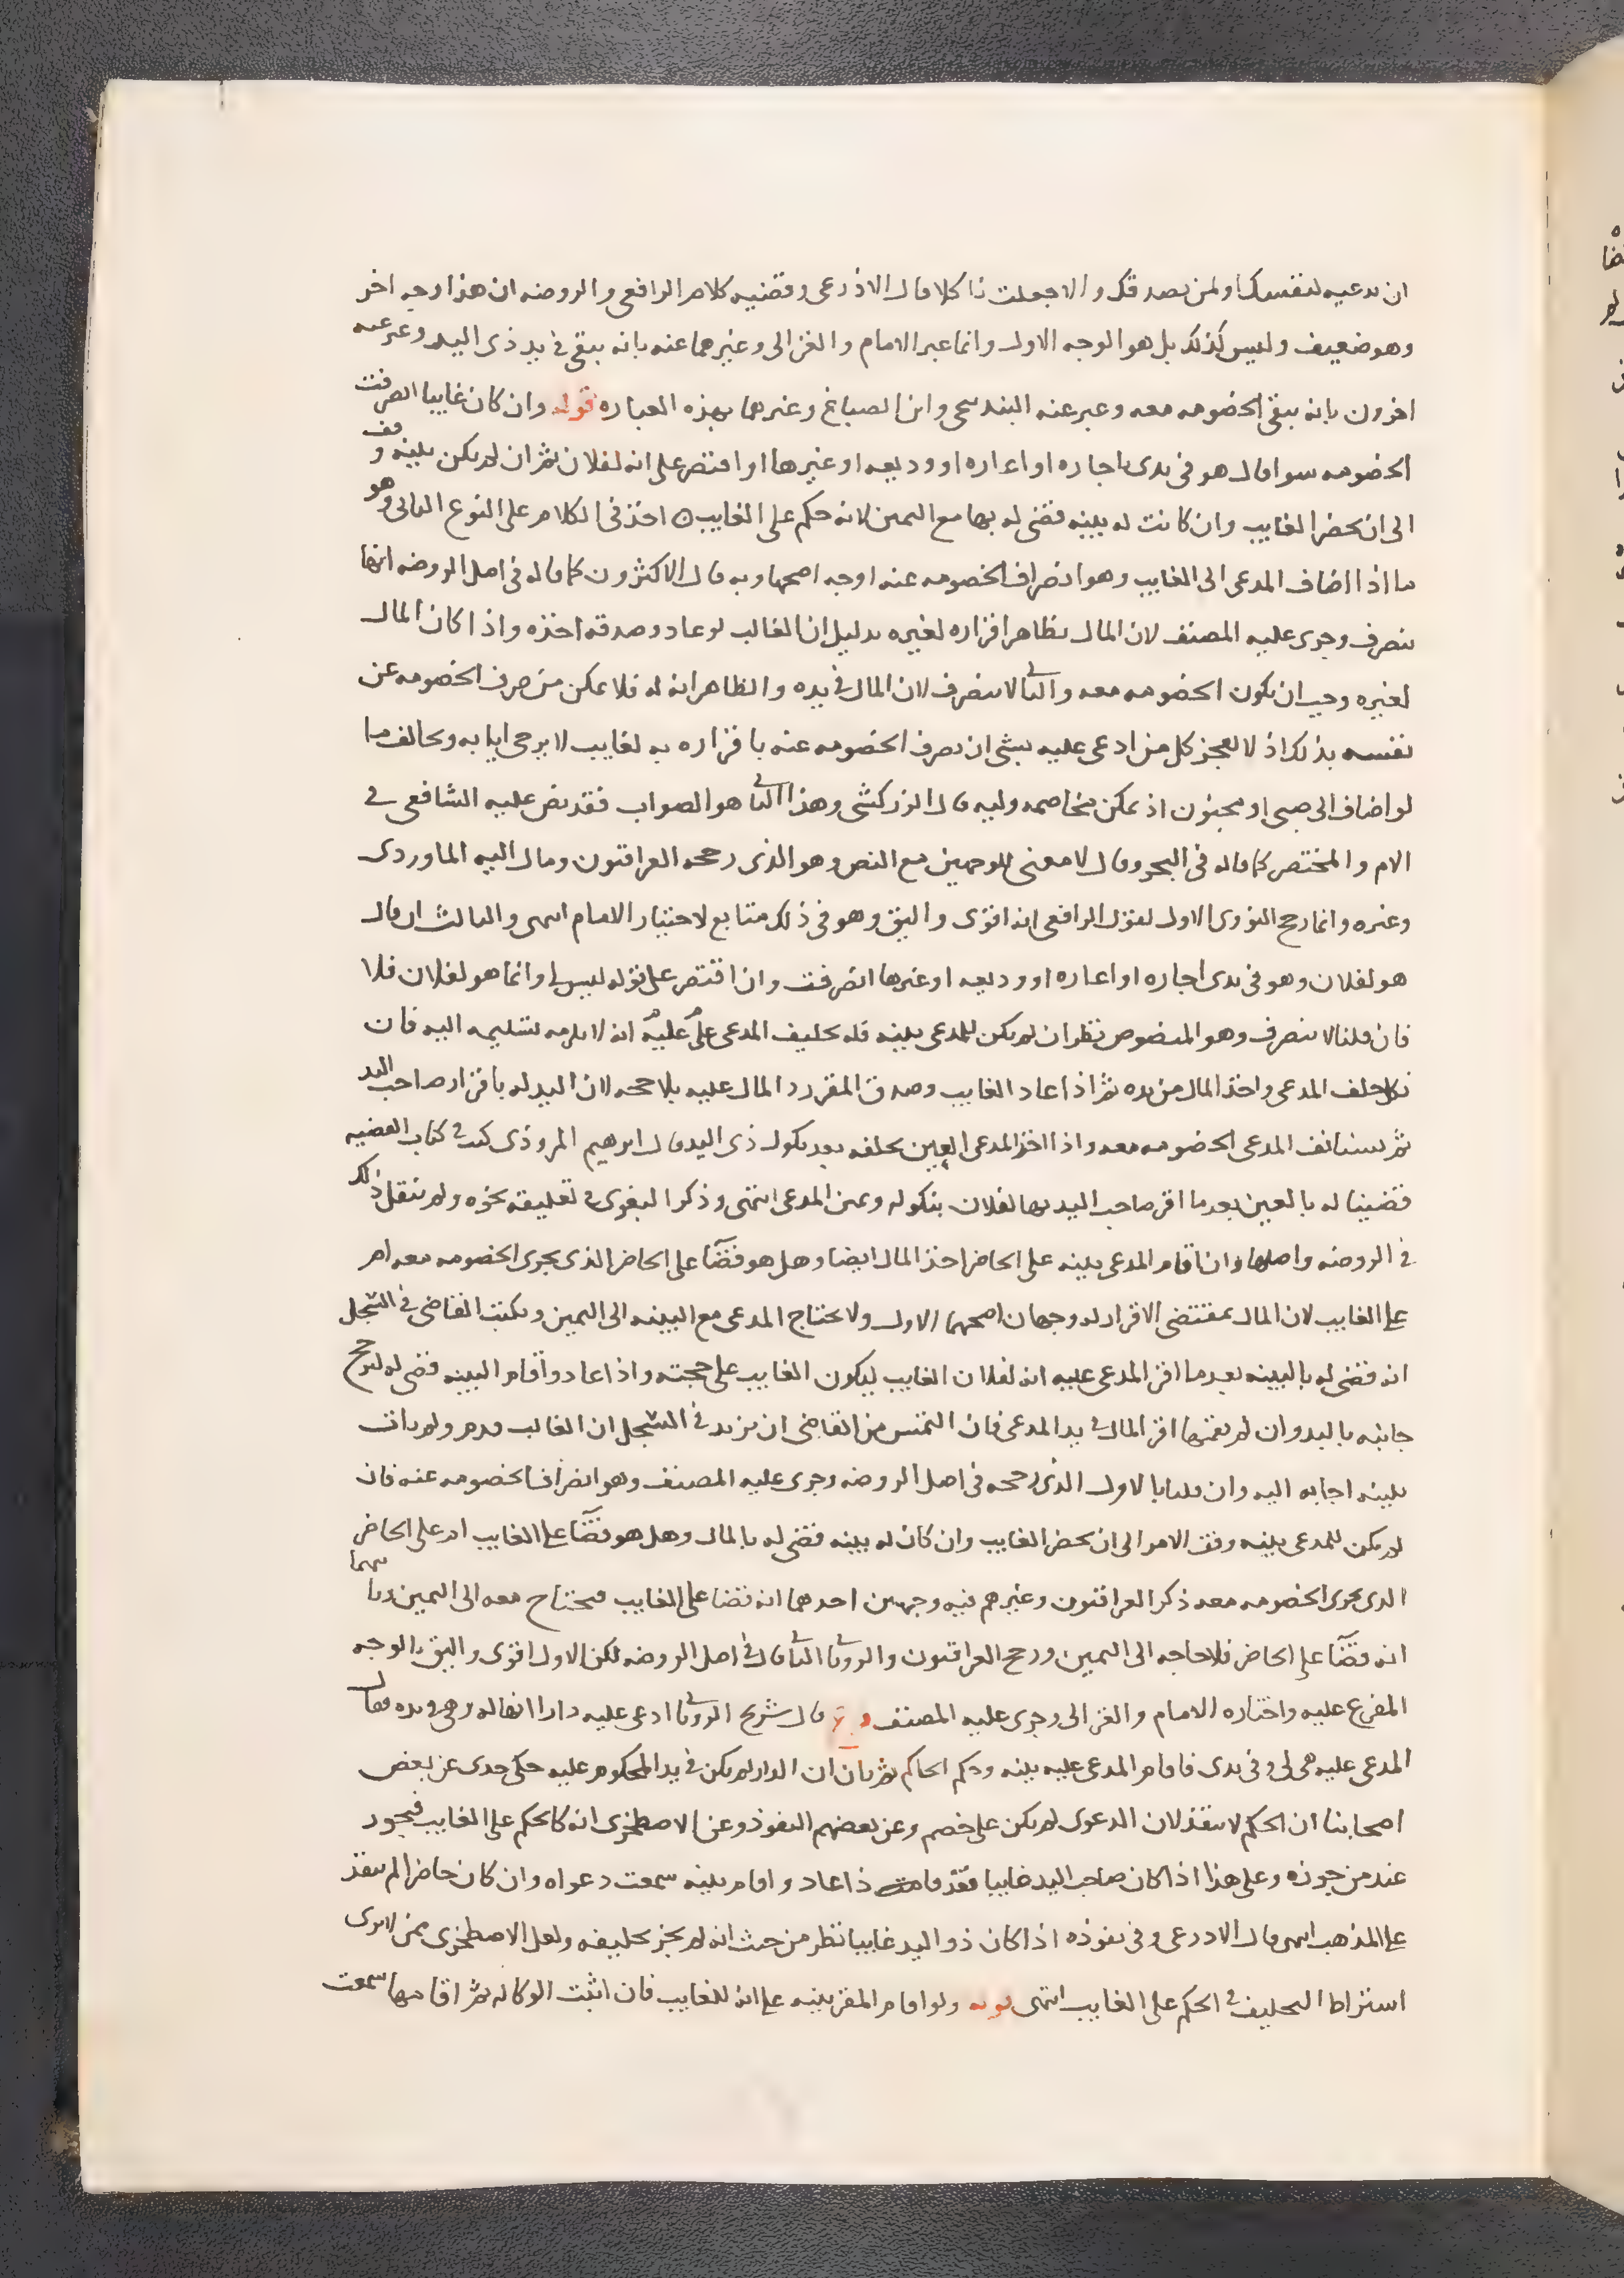 ان تدعيه لنفسك او لمن يصدقك والا جعلت ناكلا قال الاذرعى وقضيه كلام الرافعى والروضه ان هذا وجه اخر
وهو ضعيف وليس كذلك بل هو الوجه الاول وانما عبر الامام والغزالى وغيرهما عنه بانه يبقى فى يد ذى اليد وعبر عنه
اخرون بانه يبقى الخصومه معه وعبر عنه البندنيجى وابن الصباغ وغيرهما بهذه العباره قوله وان كان غايبا انصرفت
الخصومه سوا قال هو فى يدى باجاره او اعاره او وديعه او غيرها او اقتصر على انه لفلان ثم ان لم يكن بينه وقف
الى ان يحضر الغايب وان كانت له بينه قضى له بها مع اليمين لانه حكم على الغايب اخذ فى الكلام على النوع الثانى وهو
ما اذا اضاف المدعى الى الغايب وهو انصراف الخصومه عنه اوجه اصحها وبه قال الاكثرون كما قاله فى اصل الروضه انها
تنصرف وجرى عليه المصنف لان المال بظاهر اقراره لغيره بدليل ان الغالب لو عاد وصدقه اخذه واذا كان المال
لغيره وجب ان تكون الخصومه معه والثانى لا ينصرف لان المال فى يده والظاهر انه له فلا يمكن من صرف الخصومه عن
نفسه بذلك اذ لا يعجز كل من ادعى عليه بشى ان يصرف الخصومه عنه باقراره به لغايب لا يرجى ايابه ويخالف ما
لو اضاف الى صبى او مجنون اذ يمكن مخاصمه وليه قال الزركشى وهذا الثانى هو الصواب فقد نص عليه الشافعى فى
الام والمختصر كما قاله فى البحر وقال لا معنى للوجهين مع النص وهو الذى رجحه العراقيون ومال اليه الماوردى
وغيره وانما رجح النووى الاول لقول الرافعى انه اقوى واليق وهو فى ذلك متابع لاختيار الامام انتهى والثالث ان قال
هو لفلان وهو فى يدى اجاره او اعاره او وديعه او غيرها انصرفت وان اقتصر على قوله ليس لى وانما هو لفلان فلا
فان قلنا لا ينصرف وهو المنصوص نظر ان لم يكن للمدعى بينه فله تحليف المدعى على عليه انه لا يلزمه تسليمه اليه فان
نكل حلف المدعى واخذ المال من يده ثم اذا عاد الغايب وصدق المقر رد المال عليه بلا حجه لان اليد له باقرار صاحب اليد
ثم يستانف المدعى الخصومه معه واذا اخذ المدعى العين بحلفه بعد نكول ذى اليد قال ابرهيم المروذى كتب فى كتاب القضيه
قضينا له بالعين بعد ما اقر صاحب اليد بها لفلان بنكوله ويمين المدعى انتهى وذكر البغوى فى تعليقه نحوه ولم ينقل ذلك
فى الروضه واصلها وان اقام المدعى بينه على الحاضر اخذ المال ايضا وهل هو قضا على الحاضر الذى يجرى الخصومه معه ام
على الغايب لان المال بمقتضى الاقرار له وجهان اصحهما الاول ولا يحتاج المدعى مع البينه الى اليمين ويكتب القاضى فى السجل
انه قضى له بالبينه بعد ما اقر المدعى عليه انه لفلان الغايب ليكون الغايب على حجته واذا عاد واقام البينه قضى له لترجح
جانبه باليد وان لم يقمها اقر المال فى يد المدعى فان التمس من القاضى ان يزيد فى السجل ان الغالب قدم ولم يات
ببينه اجابه اليه وان قلنا بالاول الذى رجحه فى اصل الروضه وجرى عليه المصنف وهو انصراف الخصومه عنه فان
لم يكن للمدعى بينه وقف الامر الى ان يحضر الغايب وان كان له بينه قضى له بالمال وهل هو قضا على الغايب ام على الحاضر
الذى يجرى الخصومه معه ذكر العراقيون وغيرهم فيه وجهين احدهما انه قضا على الغايب فيحتاج معه الى اليمين وثانيهما
انه قضا على الحاضر فلا حاجه الى اليمين ورجح العراقيون والرويانى الثانى قال فى اصل الروضه لكن الاول اقوى واليق بالوجه
المفرع عليه واختاره الامام والغزالى وجرى عليه المصنف قال شريح الرويانى ادعى عليه دارا انها له وهى فى يده فقال
المدعى عليه هى لى وفى يدى فاقام المدعى عليه بينه وحكم الحاكم ثم بان ان الدار لم يكن فى يد المحكوم عليه حكى جدى عن بعض
اصحابنا ان الحكم لا ينفذ لان الدعوى لم يكن على خصم وعن بعضهم النفوذ وعن الاصطخرى انه كالحكم على الغايب فيجوز
عند من جوزه وعلى هذا اذا كان صاحب اليد غايبا فقدم اذا عاد واقام بينه سمعت دعواه وان كان حاضرا لم ينفذ
على المذهب انتهى قال الاذرعى وفى نفوذه اذا كان ذو اليد غايبا نظر من حيث انه لم يجز تحليفه ولعل الاصطخرى ممن لا يرى
اشتراط التحليف فى الحكم على الغايب انتهى قوله ولو اقام المقر بينه على انه للغايب فان اثبت الوكاله ثم اقامها سمعت